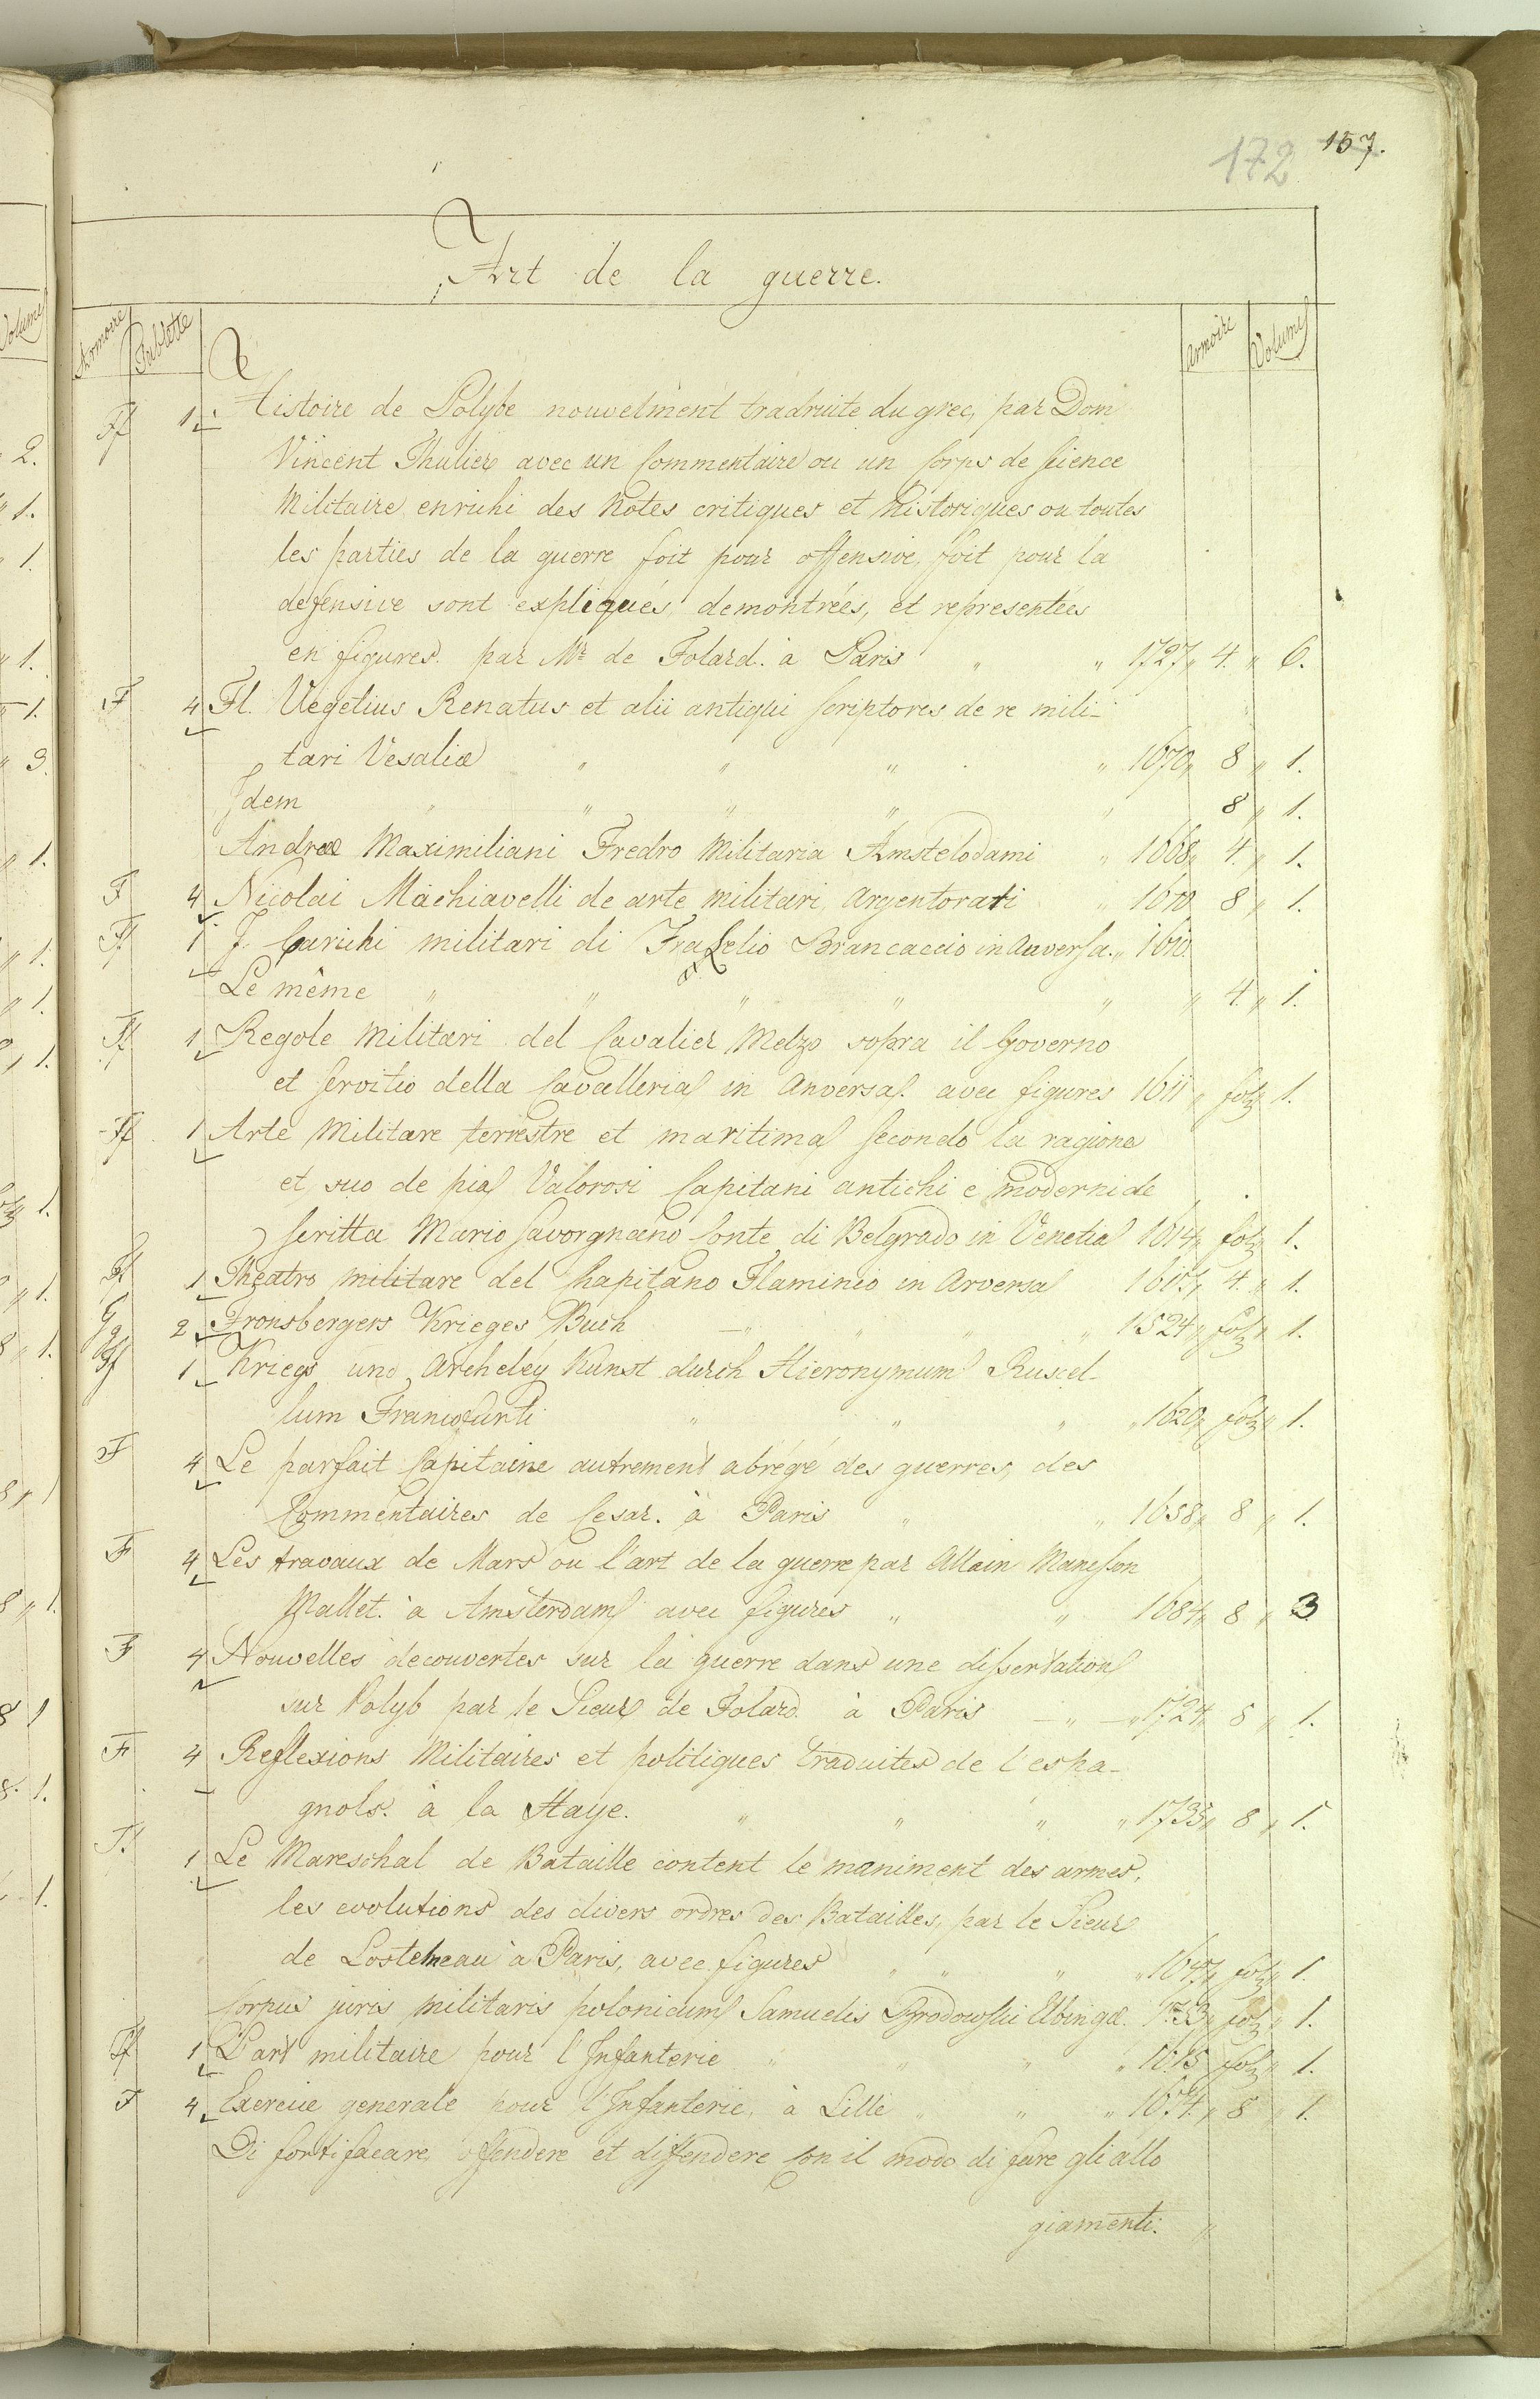 172 157.
Art de la guerre.
Armoire Tablette Armoire Volumes
Ff 1 Histoire de Polybe nouvelment tradruite du grec, par Dom
Vincent Thulier avec un Commentaire ou un Corps de science
Militaire enrichi des Notes critiques et historiques ou toutes
les parties de la guerre soit pour offensive, soit pour la
defensive sont expliqués, demontrées, et representées
en figures. par Mr de Folard. à Paris " " 1727 " 4. " 6.
F 4 Fl. Vegetius Renatus et alii antiqui scriptores de re mili-
tari Vesaliæ " " " " 1670 " 8 " 1.
Idem " " " " " 8 " 1.
Andreæ Maximiliani Fredro Militaria Amstelodami " 1668 " 4. " 1.
F 4 Nicolai Machiavelli de arte militari Argentorati " 1610 8 " 1.
Ff 1 J. Carichi militari di Fra Lelio Brancaccio in Auversa. " 1610
Le même " " " " " " 4. " 1.
Ff 1 Regole Militari del Cavalier Melzo sopra il Governo
et servitio della Cavalleria in Anversa. avec figures 1611 " fol. 1.
Ff 1 Arte Militare terrestre et maritima secondo la ragione
et suo de pia Valorosi Capitani antichi e moderni de
scritta Mario Savorgnano Conte di Belgrado in Venetia 1614 " fol. 1.
Ff 1 Theatro militare del Chapitano Flaminio in Arversa 1615 " 4. " 1.
Gg 2 Fronsbergers Krieges Buch — " " " " 1524 " fol. " 1.
Ff 1 Kriegs und Archeley Kunst durch Hieronymum Ruscel-
lum Francofurti " " " " 1620 " fol. " 1.
F 4 Le parfait Capitaine autrement abrégé des guerres, des
Commentaires de Cesar. à Paris " " 1658 " 8 " 1.
F 4 Les travaux de Mars ou l'art de la guerre par Allain Manesson
Mallet. à Amsterdam avec figures " " 1684 " 8 " 3
F 4 Nouvelles decouvertes sur la guerre dans une dissertation
sur Polyb par le Sieur de Folard à Paris — " — " 1724 " 8 " 1.
F 4 Reflexions Militaires et politiques traduites de l'espa-
gnols. à la Haye. " " " " 1735 " 8 " 1.
F. 1 Le Mareschal de Bataille content le maniment des armes,
les evolutions des divers ordres des Batailles, par le Sieur
de Lostelneau à Paris, avec figures " " " " 1647 " fol. " 1.
Corpus juris militaris polonicum Samuelis Brodowski Elbingæ. 1753 " fol. " 1.
Ff 1 L'art militaire pour l'Infanterie " " " " 1615 fol. " 1.
F 4 Exercice generale pour l'Infanterie, à Lille " " " 1674. " 8 " 1.
Di fortificare, offendere et diffendere Con il modo di fare gli allo
giamenti. "